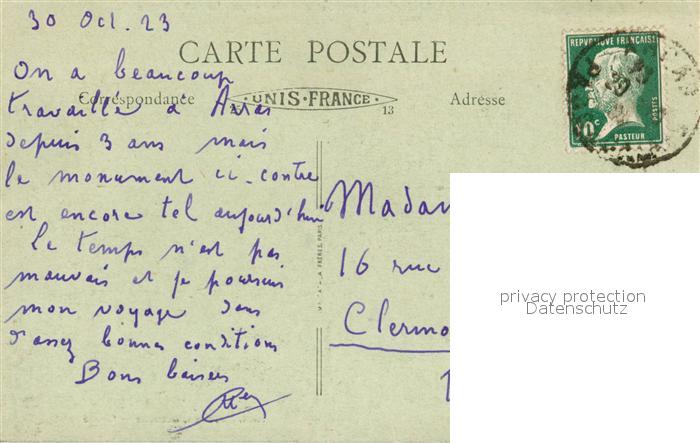 30 Oct. 23
CARTE POSTALE
Correspondance
UNIS-FRANCE
13
Adresse
REPVBLIQUE FRANÇAISE
10c
POSTES
PASTEUR
On a beaucoup
travaillé à Arras
depuis 3 ans mais
le monument ci-contre
est encore tel aujourd'hui
Le temps n'est pas
mauvais et je poursuis
mon voyage dans
d'assez bonnes conditions
Bons baisers
Madam
16 rue
Clermo
privacy protection
Datenschutz